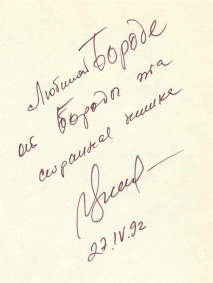 Любимой Бороде
от Бороды эта
странная книга
27.IV.92